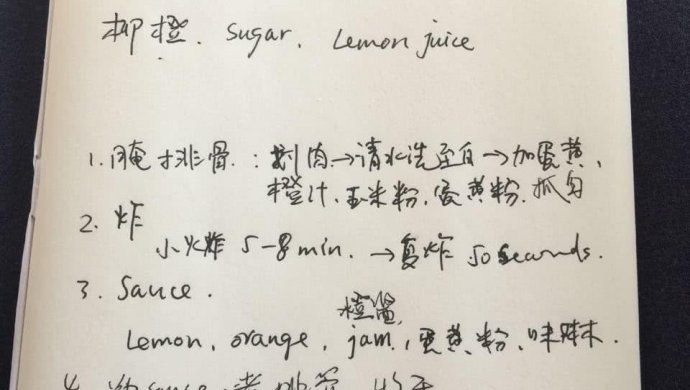 柳橙. Sugar. Lemon juice
1. 腌排骨.: 划肉→清水洗至白→加蛋黄、
橙汁、玉米粉、蛋黄粉、抓匀
2. 炸
小火炸 5-8 min. → 复炸 50 seconds.
3. Sauce.
橙酱
Lemon, orange, jam, 蛋黄粉、味淋.
4. sauce 排骨